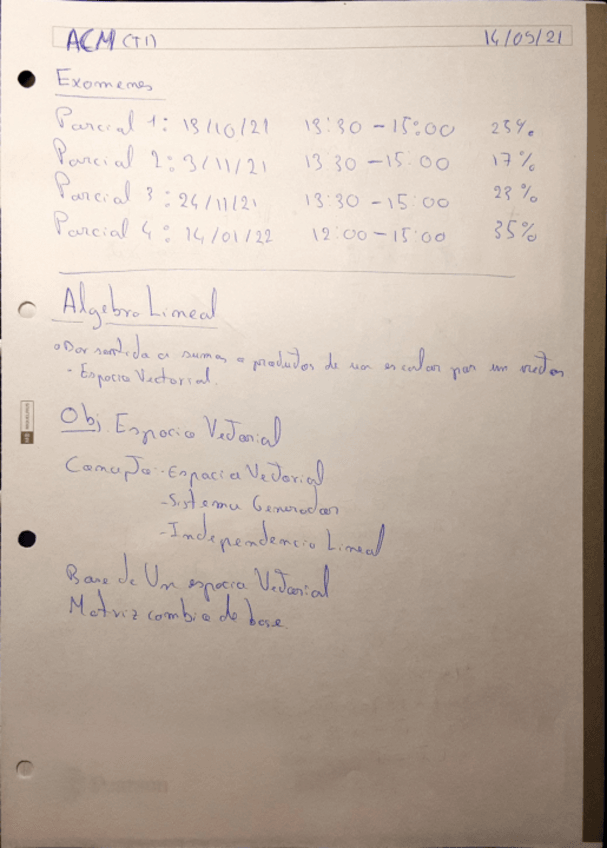 ACM (T1) 14/09/21
Examenes
Parcial 1: 13/10/21 13:30 - 15:00 25%
Parcial 2: 3/11/21 13:30 - 15:00 17%
Parcial 3: 24/11/21 13:30 - 15:00 23%
Parcial 4: 14/01/22 12:00 - 15:00 35%
Algebra Lineal
Dar sentido a sumas o productos de un escalar por un vector
- Espacio Vectorial.
Obj. Espacio Vectorial
Concepto - Espacio Vectorial
- Sistema Generador
- Independencia Lineal
Base de Un espacio Vectorial
Matriz cambio de base.